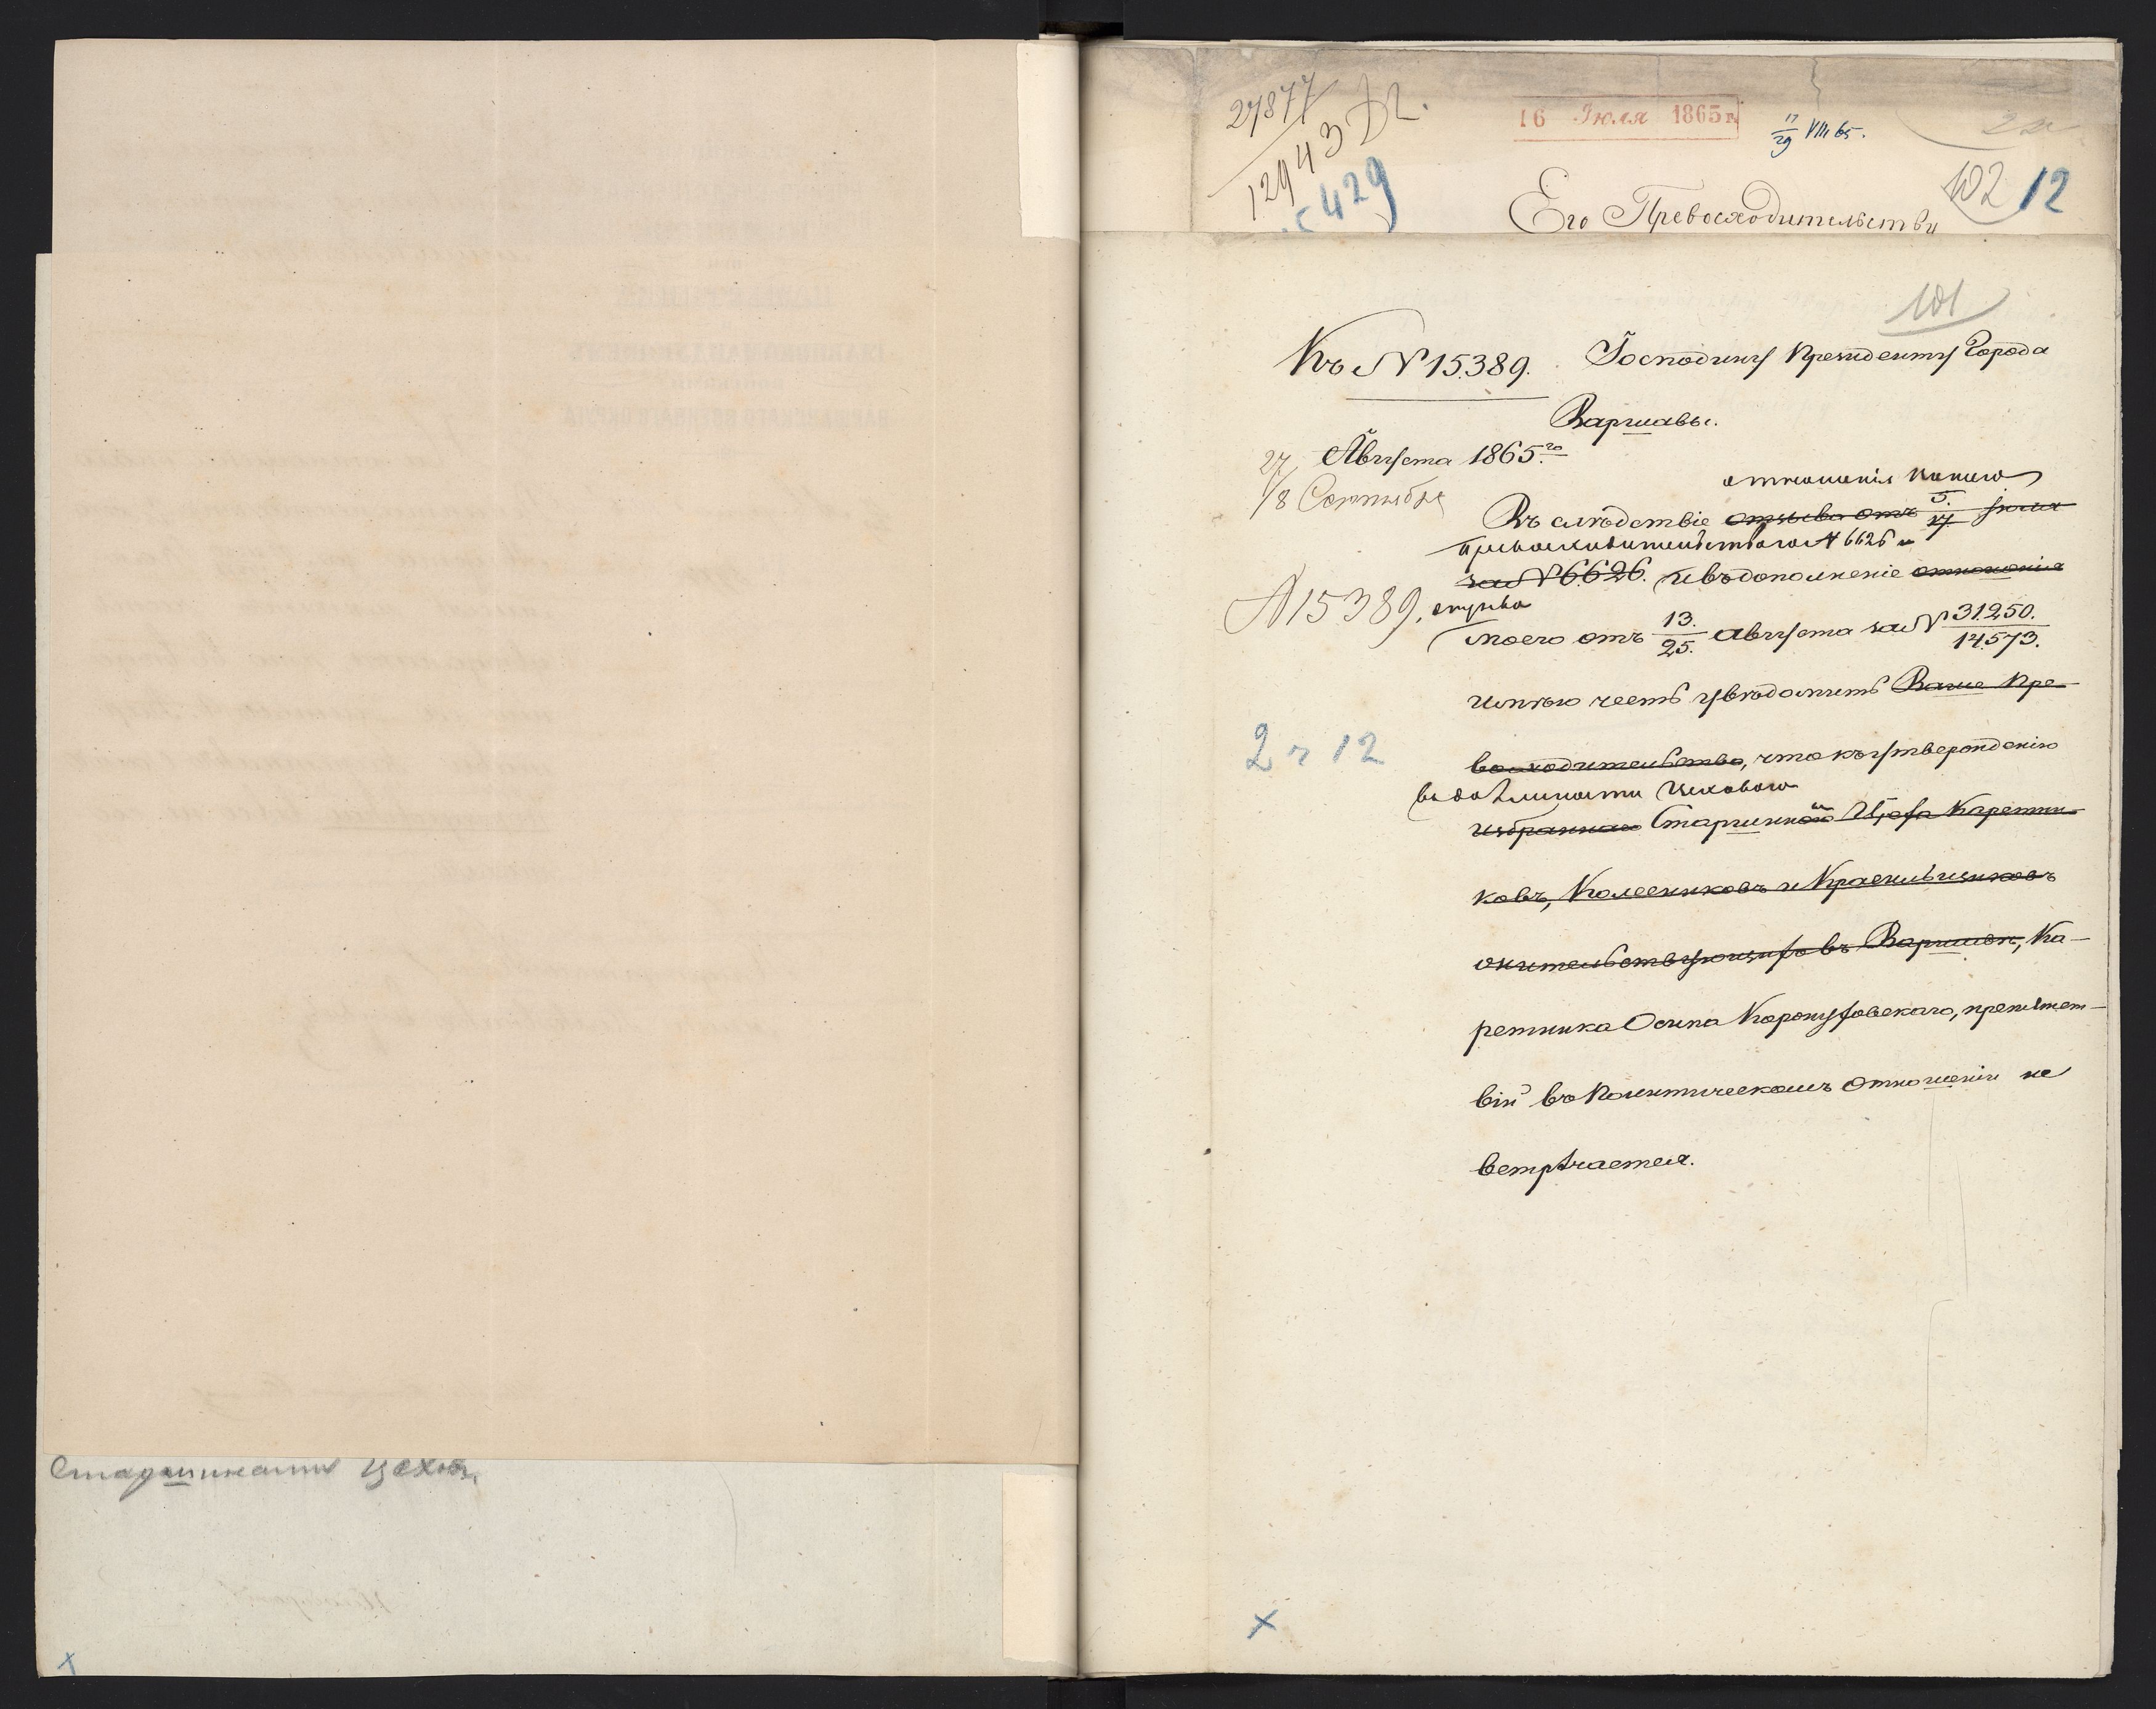 Старшинами цеховъ
27877
12943
429
16 Іюля 1865 г.
17/29 VIII 65.
102 12
Его Превосходительству
101
Къ № 15389. Господину Президенту Города
Варшавы.
27 Августа 1865 го
/8 Сентября
отношенія Вашего
Въ слѣдствіе отзыва отъ 5./17. Іюля
Превосходительства № 6626 и
за № 6626. и въ дополненіе отношенія
№ 15389. отзыва
моего отъ 13./25. Августа за № 31250./14573.
имѣю честь увѣдомить Ваше Пре-
2 ч 12
восходительство, что къ утвержденію
въ должности цеховаго
избраннаго Старшиною Цеха Каретни-
ковъ, Колесниковъ и Красильщиковъ
жительствующихъ въ Варшавѣ, Ка-
ретника Осипа
вій въ Политическомъ отношеніи не
встрѣчается.